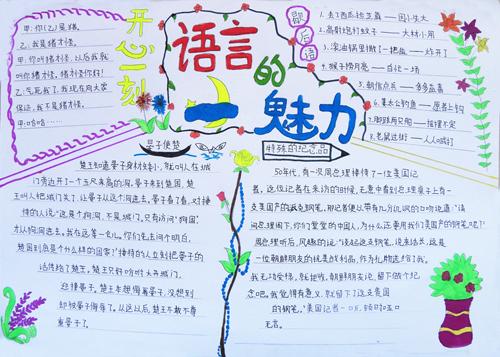 开心一刻
甲:你(乙)是猪。
乙:我是猪才怪。
甲:你叫猪才怪,以后我就
叫你猪才怪,猪才怪你好!
乙:气死我了,我现在向大家
保证,我不是猪才怪。
甲:哈哈……
语言的
魅力
歇后语
1. 丢了西瓜捡芝麻——因小失大
2. 高射炮打蚊子——大材小用
3. 滚油锅里撒了一把盐——炸开了
4. 猴子捞月亮——白忙一场
5. 韩信点兵——多多益善
8. 老鼠过街——人人喊打
晏子使楚
楚王知道晏子身材矮小,就叫人在城
门旁边开了一个五尺来高的洞。晏子来到楚国,楚
王叫人把城门关了,让晏子从这个洞进去。晏子看了看,对接
待的人说:“这是个狗洞,不是城门。只有访问‘狗国’
才从狗洞进去。我在这等一会儿。你们先去问个明白,
楚国到底是个什么样的国家?”接待的人立刻把晏子的
话传给了楚王。楚王只好吩咐大开城门,
迎接晏子。楚王本想侮辱晏子,没想到
却被晏子侮辱了。从这以后,楚王不敢不尊
重晏子了。
特殊的纪念品
50年代,有一次周总理接待了一位美国记
者。这位记者在采访的时候,无意中看到总理桌子上有一
支美国产的派克钢笔。那记者便以带有几分讥讽的口吻说道:“请
问总理阁下,你们堂堂的中国人,为什么还要用我们美国产的钢笔呢?”
周总理听后,风趣的说:“谈起这支钢笔,说来话长,这是
一位朝鲜朋友的抗美战利品,作为礼物送给了我。
我无功受禄,就拒收。朝鲜朋友说,留下做个纪
念吧。我觉得有意义,就留下了这支贵国
的钢笔。”美国记者一听,顿时哑口
无言。